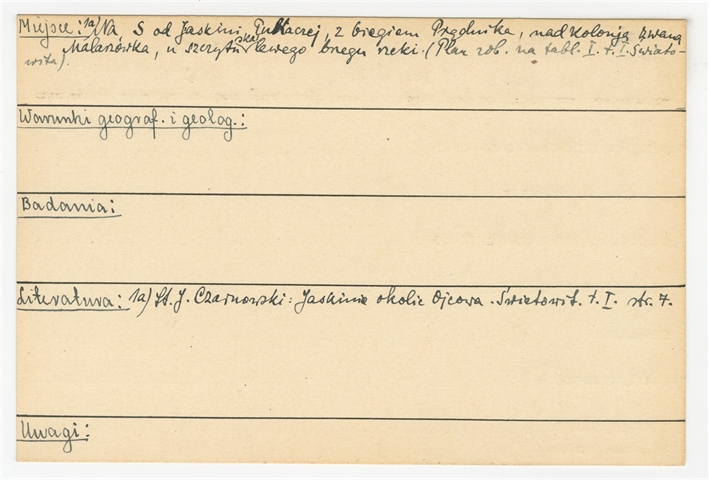 Miejsce: 1a) Na S od Jaskini Puttaczej, z biegiem Prądnika, nad kolonją zwaną
Malarówka, u szczytu skał lewego brzegu rzeki. (Plan zob. na tabl. I. t. I. Świato-
wita).
Warunki geograf. i geolog.:
Badania:
Literatura: 1a) St. J. Czarnowski: Jaskinie okolic Ojcowa. Światowit. t. I. str. 7.
Uwagi: